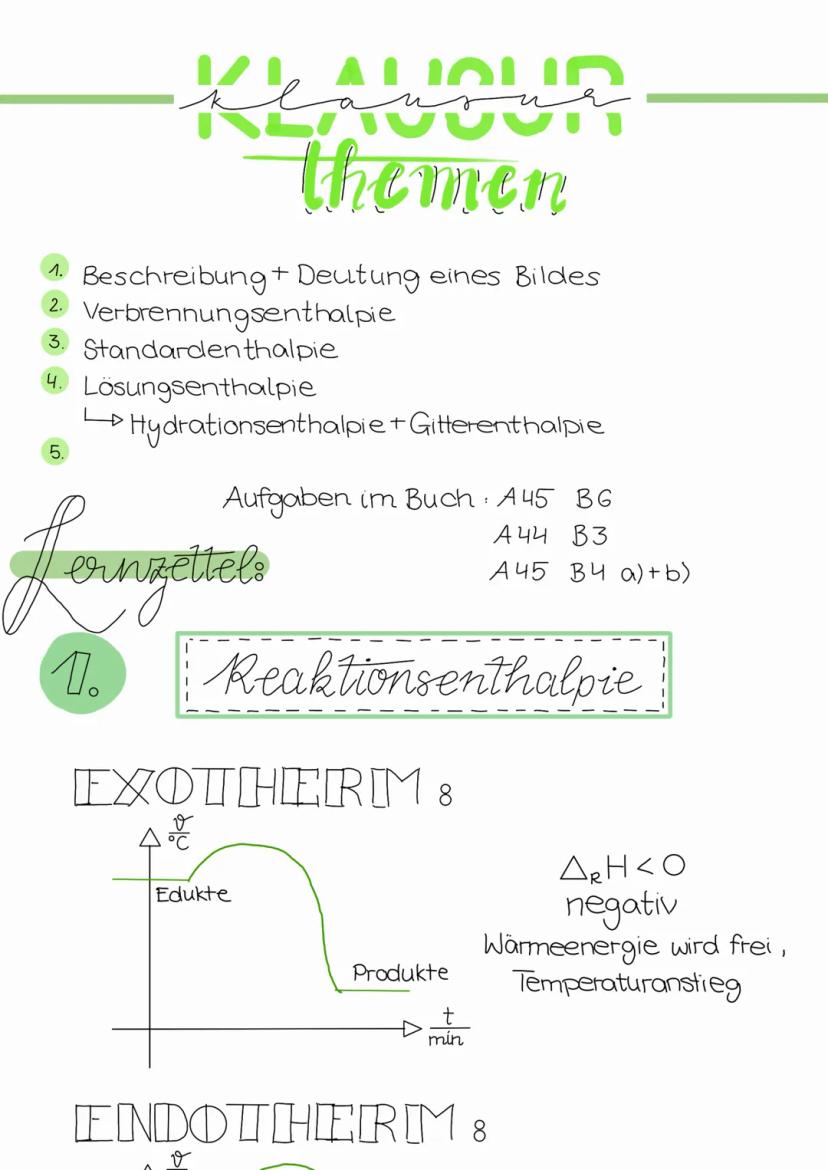 KLAUSUR
klausur
themen
1. Beschreibung + Deutung eines Bildes
2. Verbrennungsenthalpie
3. Standardenthalpie
4. Lösungsenthalpie
↳ Hydrationsenthalpie + Gitterenthalpie
5.
Aufgaben im Buch : A45 B6
A44 B3
A45 B4 a)+b)
Lernzettel:
1. Reaktionsenthalpie
EXOTHERM :
ϑ/°C
Edukte
Produkte
t/min
ΔRH < 0
negativ
Wärmeenergie wird frei,
Temperaturanstieg
ENDOTHERM :
ϑ